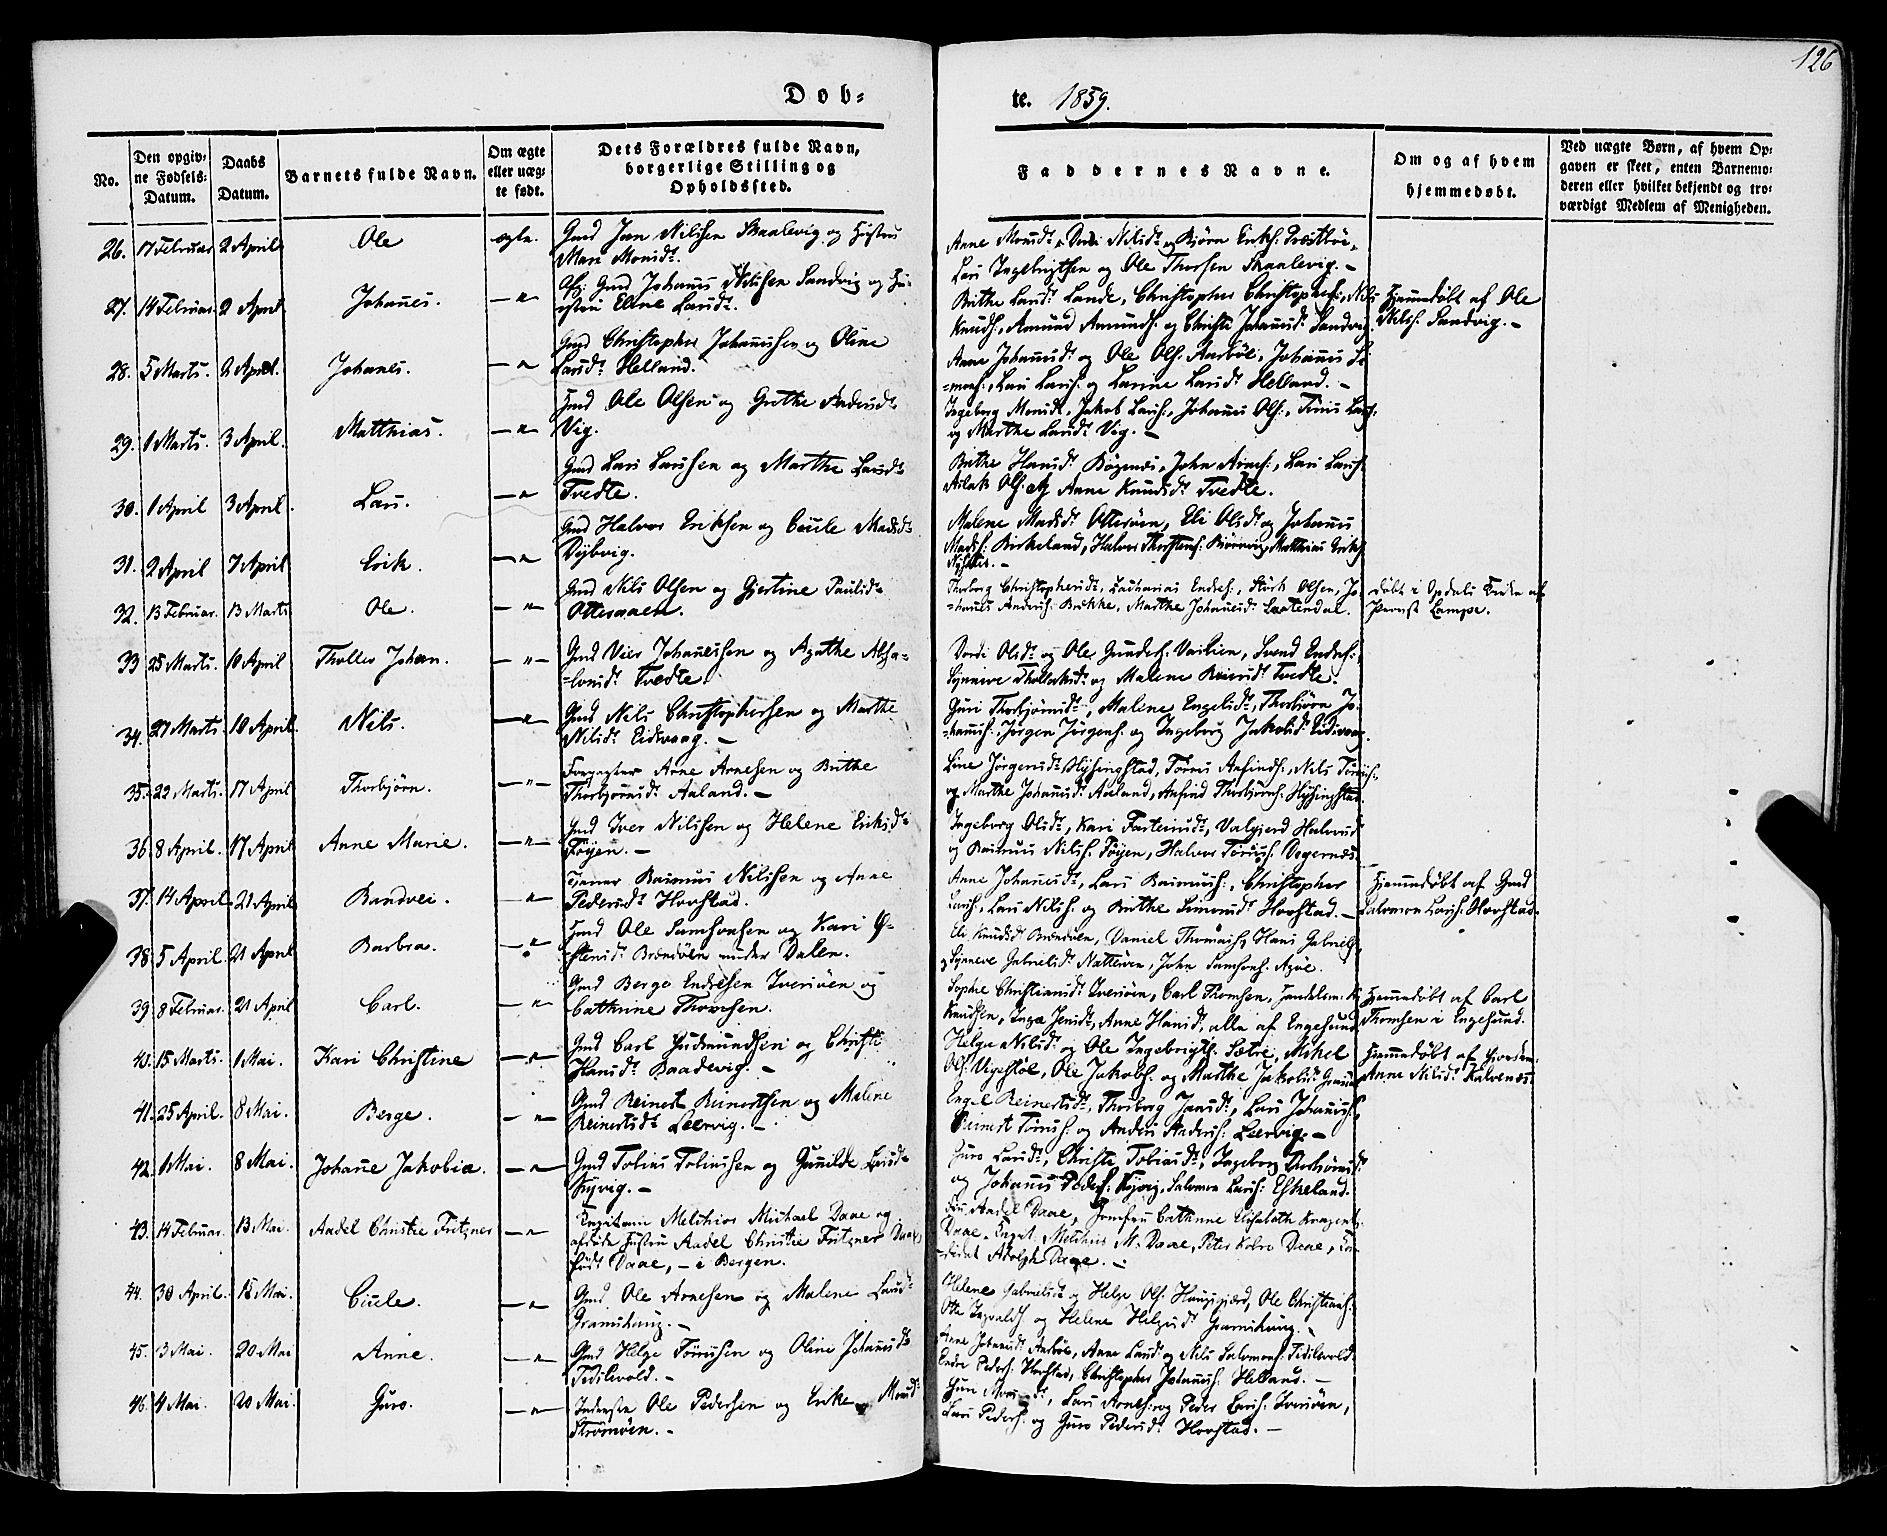 126
Døb-
te. 1859.
No.
Den opgiv-
ne Fødsels-
Datum.
Daabs
Datum.
Barnets fulde Navn.
Om ægte
eller uæg-
te født.
Dets Forældres fulde Navn,
borgerlige Stilling og
Opholdssted.
Faddernes Navne.
Om og af hvem
hjemmedøbt.
Ved uægte Børn, af hvem Op-
gaven er skeet, enten Barnemo-
deren eller hvilket bekjendt og tro-
værdigt Medlem af Menigheden.
26. 17 Februar 2 April Ole ægte. Gmd Jan Nilsen Skaalevig og Hustru
Mari Monsdr.
Lars Ingebrigtsen og Ole Thorsen Skaalevig. –
27. 14 Februar. 2 April Johannes. –"– Gmd Johannes Nilsen Sandvig og Hu-
stru Eline Larsdr.
Brithe Larsdr. Lande, Christopher Christophers., Nils
Knuds., Amund Amunds. og Christi Johannesdr. Sandvig.
Hjemmedøbt af Ole
Nils. Sandvig. –
28. 5 Marts. 2 April. Johannes. –"– Gmd Christopher Johannessen og Oline
Larsdr. Helland.
Anne Johannesdr. og Ole Ols. Aarbøe, Johannes Si-
-mons., Lars Lars. og Larine Larsdr. Helland. –
29. 1 Marts. 3 April. Matthias. –"– Hmd Ole Olsen og Grethe Andersdr.
Vig.
Ingeborg Monsdr., Jakob Lars., Johannes Ols., Tønnes Lars.
og Marthe Larsdr. Vig. –
30. 1 April 3 April. Lars. –"– Gmd Lars Larssen og Marthe Larsdr.
Tvedte.
Brithe Hansdr. Bøgenæs, John Arnes., Lars Lars.
Aslak Ols. og Anne Knudsdr. Tvedte.
31. 2 April 7 April Erik. –"– Gmd Halvor Eriksen og Cicile Madsdr.
Dybvig.
Malene Madsdr. Otterøen, Eli Olsdr. og Johannes
Mads. Birkeland, Halvor Thorstens. Matthias Eriks.
32. 13 Februar. 13 Marts Ole. –"– Gmd Nils Olsen og Gjertine Paulsdr.
Thorborg Christophersdr., Zacharias Endres., Størk Olsen, Jo-
-hannes Anders. Bekke, Marthe Johannesdr.
Døbt i Opdals Kirke af
Præst Lampe.
33 25 Marts. 10 April Tholles Johan. –"– Gmd Vier Johannessen og Agathe Absa-
-lonsdr. Tvedte.
Dordi Olsdr. og Ole Gundes. Svend Endres.,
og Malene Tvedte.
34. 27 Marts. 10 April. Nils. –"– Gmd Nils Christophersen og Marthe
Nilsdr. Eidsvaag. –
Guri Thorbjørnsdr., Malene Engelsdr., Thorbjørn Jo-
-hannes., Jørgen Jørgens. og Ingeborg Jakobsdr. Eidsvaag.
35. 22 Marts. 17 April Thorbjørn. –"– Forpagter Arne Arnesen og Brithe
Thorbjørnsdr. Aaland. –
Line Jørgensdr. Hysingstad, Tørres Arfinds., Nils Tørres.,
og Marthe Johannesdr. Aaland, Arfind Thorbjørns. Hysingstad.
36. 8 April. 17 April Anne Marie. –"– Gmd Iver Nilssen og Helene Eriksdr.
Føyen. –
Ingeborg Olsdr., Kari Torsteinsdr., Valgjerd Halvorsdr.
og Rasmus Nils. Føyen, Halvor Tørres. Vegernæs.
37. 14 April. 21 April Randvei. –"– Tjener Rasmus Nilssen og Anne
Pedersdr. Hovstad.
Anne Johannesdr., Lars Rasmus., Christopher
Lars., Lars Nils. og Brithe Simonsdr. Hovstad. –
Hjemmedøbt af Gmd
Salomon Lars. Hovstad.
38. 5 April. 21 April Barbra. –"– Hmd Ole Samsonsen og Kari Ø-
-stensdr. Brandøen under Dalen.
Eli Knudsdr. Brandøen, Daniel Thomas., Hans Gabriels.,
Synneve Gabrielsdr. Natterøen, John Samsons. Agøe.
39. 8 Februar. 21 April Carl. –"– Gmd Berge Endresen Iversøen og
Cathrine Thomsen.
Sophe Christiansdr. Iversøen, Carl Thomsen, Handelsm: K.
Knudsen, Inga Jensdr., Anne Hansdr., alle af Engesund
Hjemmedøbt af Carl
Thomsen i Engesund.
40. 15 Marts. 1 Mai. Kari Christine –"– Gmd Carl Gudmundsen og Christi
Hansdr. Baadevig. –
Helga Nilsdr. og Ole Ingebrigts. Sætre, Mikel
Ols. Vigestøe, Ole Jakobs. og Marthe Jakobsdr.
Hjemmedøbt af Gjordem:
Anne Nilsdr. Kalvenæs.
41. 25 April. 8 Mai. Berge. –"– Gmd Reinert Reinertsen og Malene
Reinertsdr. Leervig. –
Engel Reinertsdr., Thorborg Jansdr., Lars Johannes.,
Reinert Tørres. og Anders Anders. Leervig. –
42. 1 Mai. 8 Mai. Johanne Jakobia. –"– Gmd Tobias Tobiassen og Gunilde Larsdr.
Kyvig. –
Guro Larsdr., Christi Tobiasdr., Ingeborg
og Johannes Peders. Kyvig, Salomon Lars. Eskeland.
43. 14 Februar. 13 Mai. Aadel Christie Fritzner –"– Capitain Melchior Michael Daae og
afdøde Hustru Aadel Christie Fritzner Daae
født Daae, – i Bergen.
Fru Aadel Daae, Jomfru Cathrine Elisabeth
Daae, Capt. Melchior M. Daae, Peter Kolbo Daae,
Adolph Daae. –
44. 30 April. 15 Mai. Cicile. –"– Gmd. Ole Arnesen og Malene Larsdr.
Gramshaug. –
Helene Gabrielsdr. og Helge Ols. Haugsgjærd, Ole Christians.
Ole Ingvalds. og Helene Helgesdr. Gramshaug. –
45. 3 Mai. 20 Mai Anne. –"– Gmd Helge Tørressen og Oline Johannesdr.
Tislevold. –
Anne Johannesdr. Aarbøe, Anne Larsdr. og Nils Salomons. Tislevold.
Endre Peders. Hovstad, Christopher Johannes. Helland. –
46. 4 Mai. 20 Mai. Guro. –"– Inderste Ole Pedersen og Erike Monsdr.
Strømøen. –
Guri Lars Arnes. og Peder Lars. Iversøen,
Lars Peders. og Guro Pedersdr. Hovstad. –